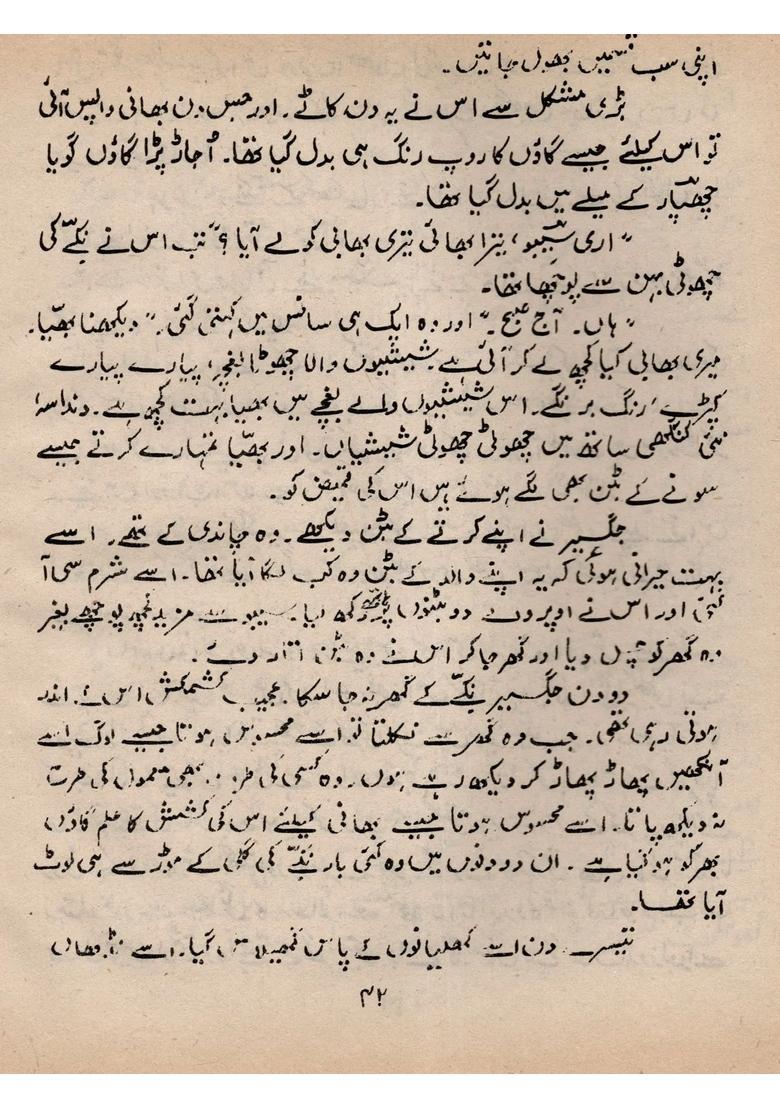 اپنی سب قسمیں بھول جاتیں۔
بڑی مشکل سے اس نے یہ دن کاٹے۔ اور جس دن بھابی واپس آئی
تو اس کیلئے جیسے گاؤں کا روپ رنگ ہی بدل گیا تھا۔ اُجاڑ پڑا گاؤں گویا
چھپّار کے میلے میں بدل گیا تھا۔
”اری سیّبو، تیرا بھائی تیری بھابی کو لے آیا؟“ تب اس نے نکّے کی
چھوٹی بہن سے پوچھا تھا۔
”ہاں۔ آج صبح۔“ اور وہ ایک ہی سانس میں کہتی گئی۔ ”دیکھنا بھیّا۔
میری بھابی کیا کچھ لے کر آئی ہے۔ شیشیوں والا چھوٹا بغچہ، پیارے پیارے
کپڑے، رنگ برنگے۔ اس شیشیوں والے بغچے میں بھیا بہت کچھ ہے۔ دنداسہ
نئی کنگھی ساتھ میں چھوٹی چھوٹی شیشیاں۔ اور بھیّا تمہارے کرتے جیسے
سونے کے بٹن بھی لگے ہوئے ہیں اس کی قمیض کو۔
جگسیر نے اپنے کرتے کے بٹن دیکھے۔ وہ چاندی کے تھے۔ اسے
بہت حیرانی ہوئی کہ یہ اپنے والد کے بٹن وہ کب لگا آیا تھا۔ اسے شرم سی آ
گئی اور اس نے اوپر والے دو بٹنوں پر ہاتھ رکھ لیا۔ سیبو سے مزید کچھ پوچھے بغیر
وہ گھر کو چل دیا اور گھر جا کر اس نے وہ بٹن اتار دیے۔
دو دن جگسیر نکّے کے گھر نہ جا سکا۔ عجیب کشمکش اس کے اندر
ہوتی رہی تھی۔ جب وہ گھر سے نکلتا تو اسے محسوس ہوتا جیسے لوگ اسے
آنکھیں پھاڑ پھاڑ کر دیکھ رہے ہوں۔ وہ کسی کی طرف بھی معمول کی طرح
نہ دیکھ پاتا۔ اسے محسوس ہوتا جیسے بھابی کیلئے اس کی کشش کا علم گاؤں
بھر کو ہو گیا ہے۔ ان دو دنوں میں وہ کئی بار نکّے کی گلی کے موڑ سے ہی لوٹ
آیا تھا۔
تیسرے دن اسے کھلیانوں کے پاس گیا۔ اسے
۴۲